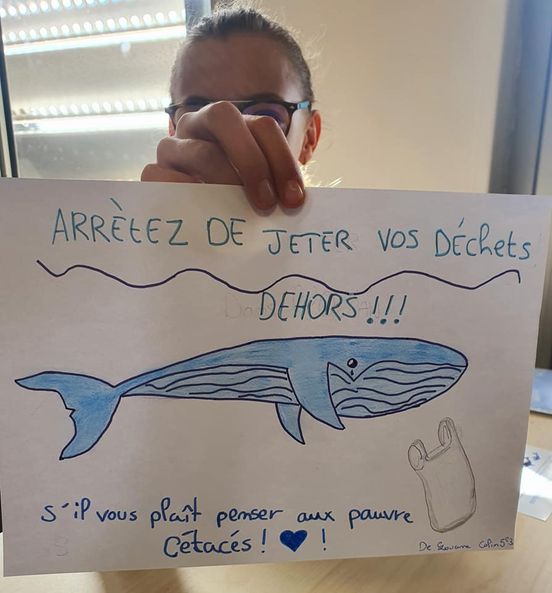 ARRÈTEZ DE JETER VOS DÉChets
DEHORS !!!
s'il vous plaît penser aux pauvre
Cétacés ! ♥ !
De Colin 5°3